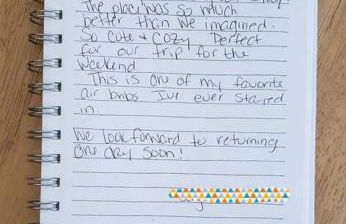 The place was so much
better than we imagined.
So cute & cozy Perfect
for our trip for the
weekend
This is one of my favorite
air bnbs I've ever stayed
in.
We look forward to returning
one day soon!